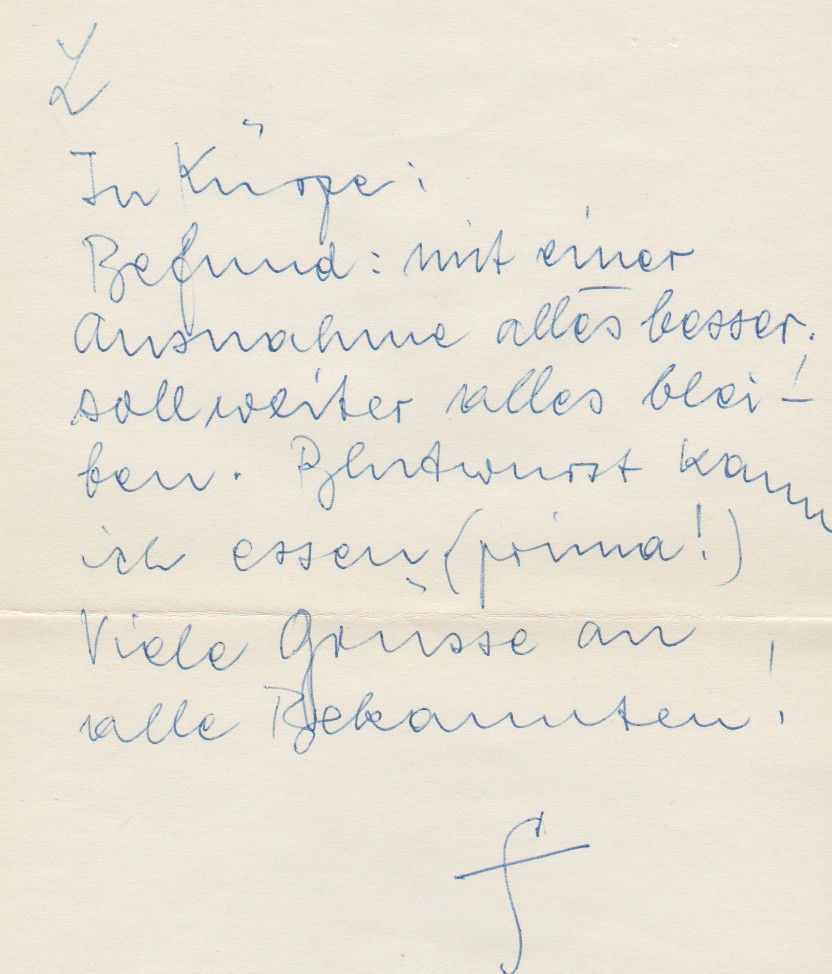 L
In Kürze:
Befund: mit einer
Ausnahme alles besser.
soll weiter alles blei-
ben. Blutwurst kann
ich essen (prima!)
Viele Grüsse an
alle Bekannten!